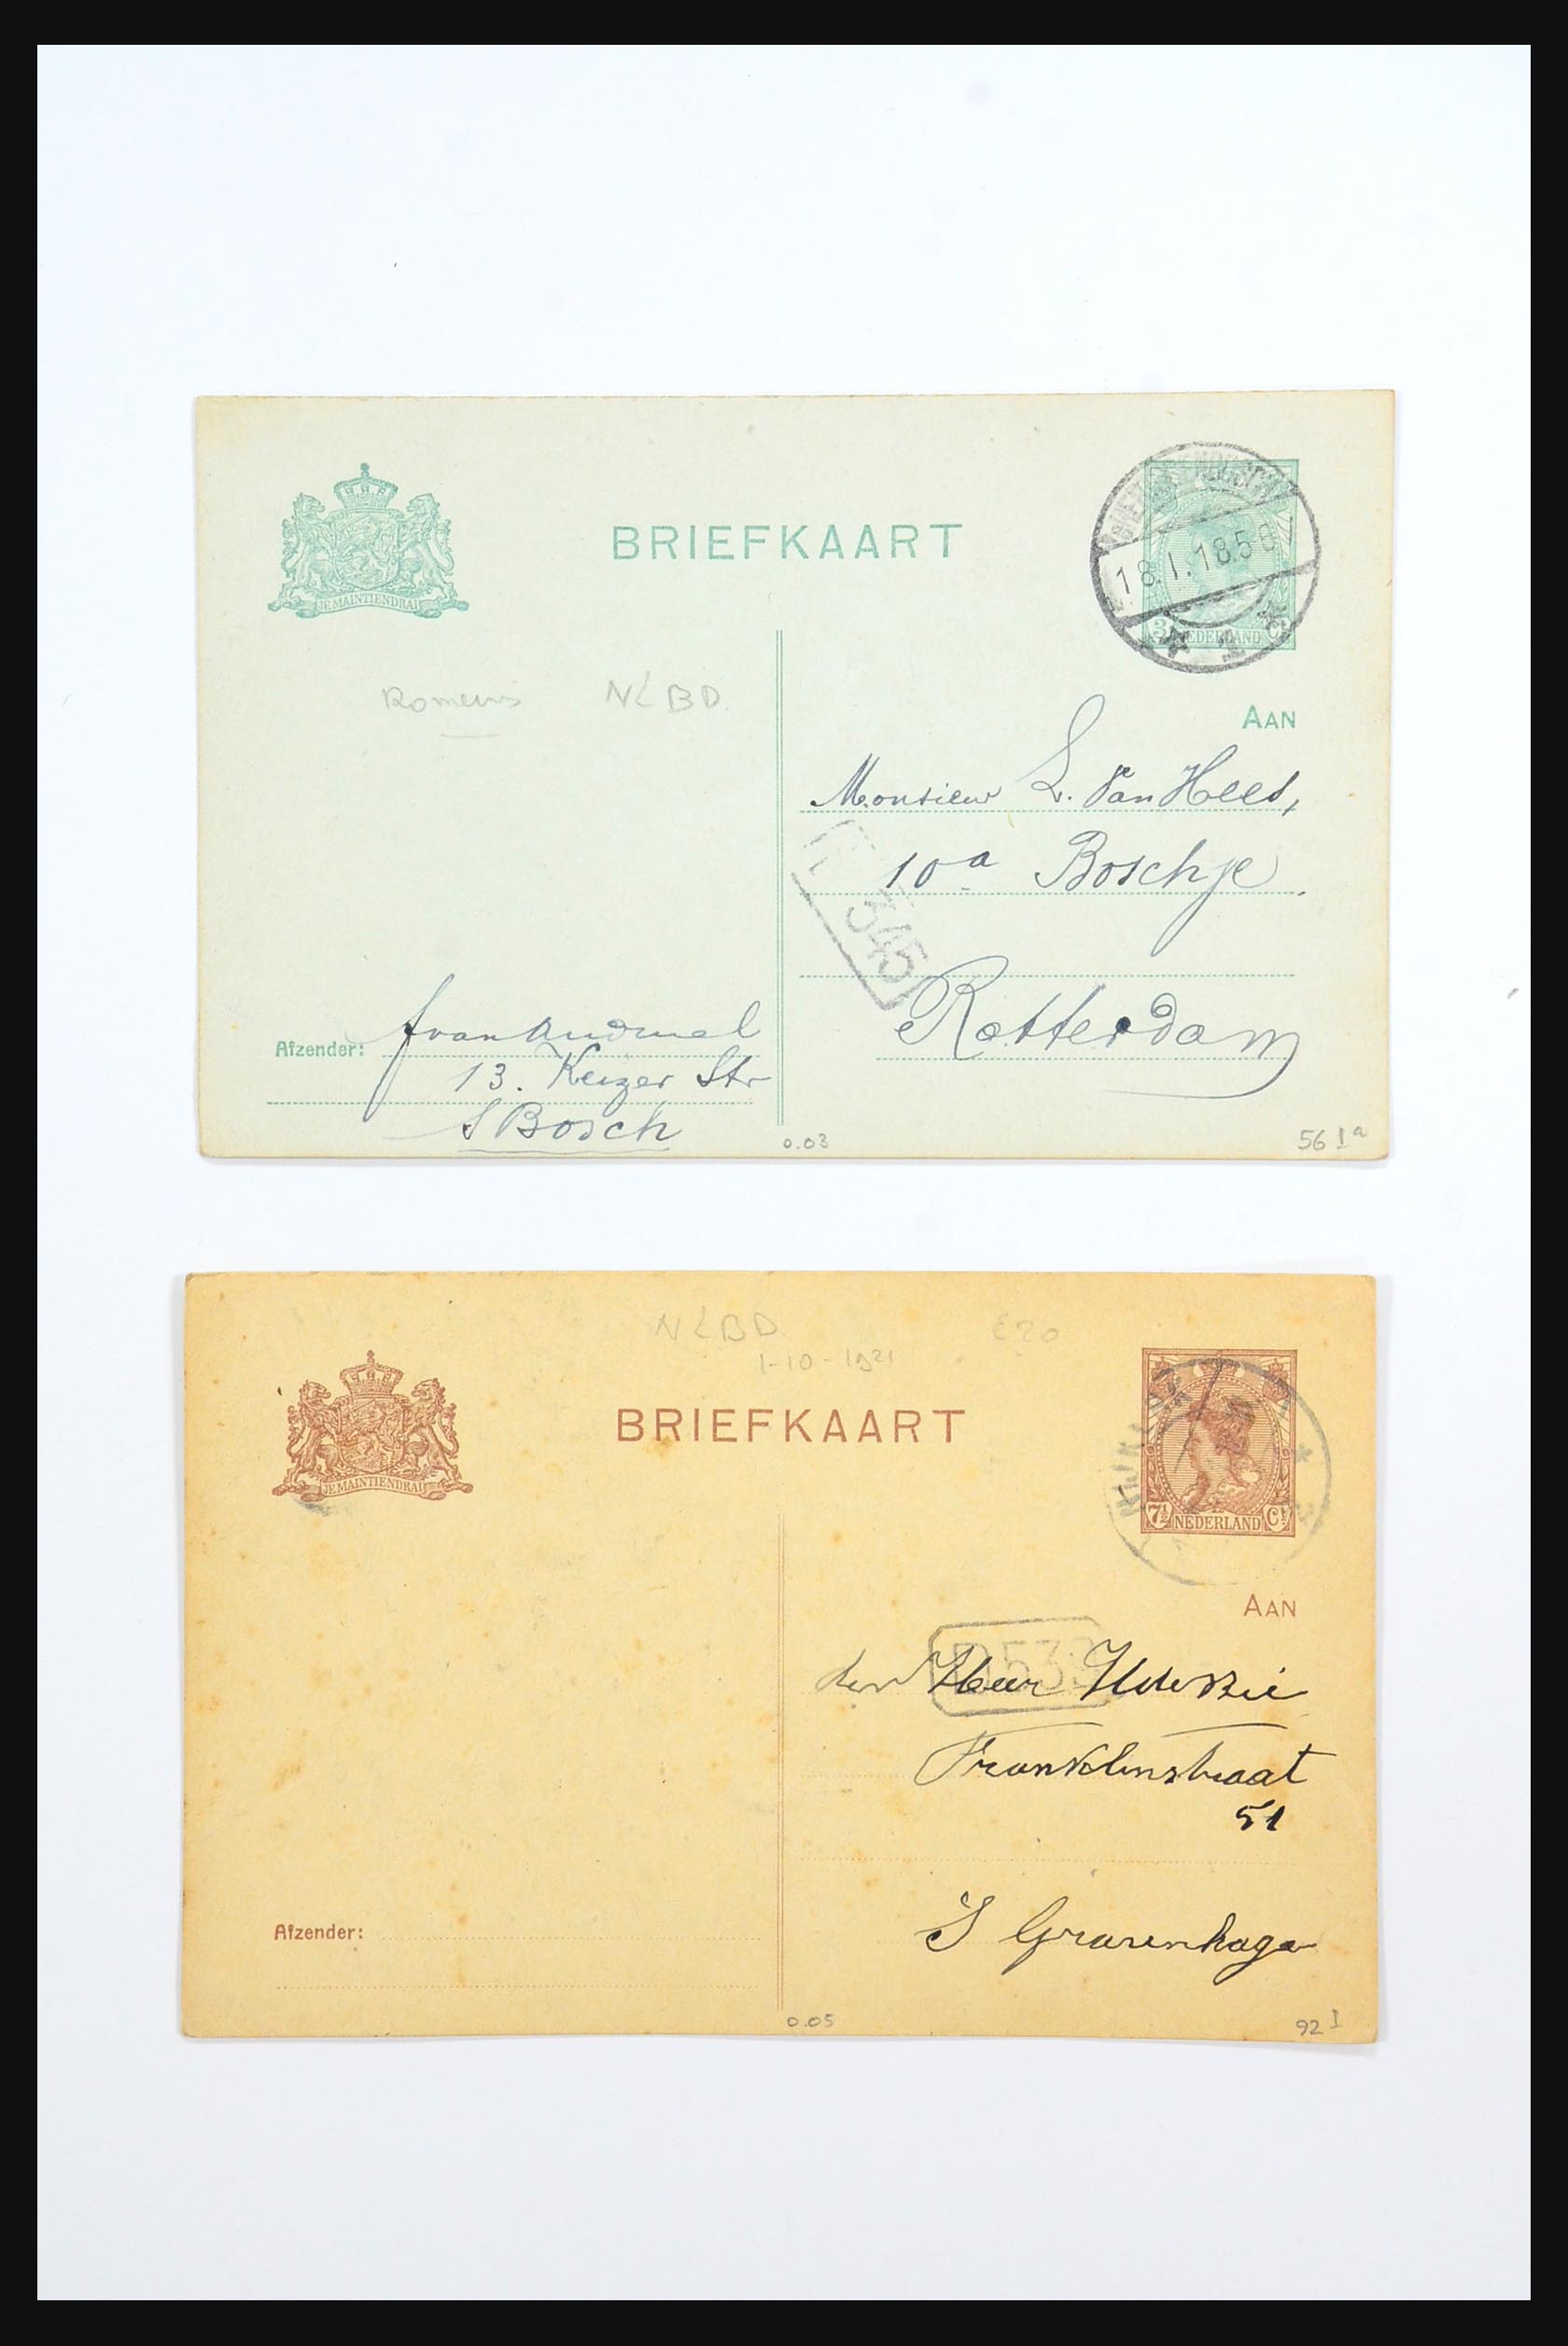 BRIEFKAART
JE MAINTIENDRAI
18.1.18.5
1
3 NEDERLAND Ct
NLBD.
AAN
Monsieur L. Van Hees,
10a Boschje.
345
Rotterdam
Afzender:
13. Keizer Str
S Bosch
0.03
56 Ia
NLBD
1-10-1921
€20
BRIEFKAART
JE MAINTIENDRAI
7½ NEDERLAND Ct
AAN
den Heer
Franklinstraat
51
S Gravenhage
Afzender:
0.05
92 I